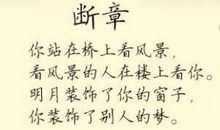 断章
你站在桥上看风景，
看风景的人在楼上看你。
明月装饰了你的窗子，
你装饰了别人的梦。